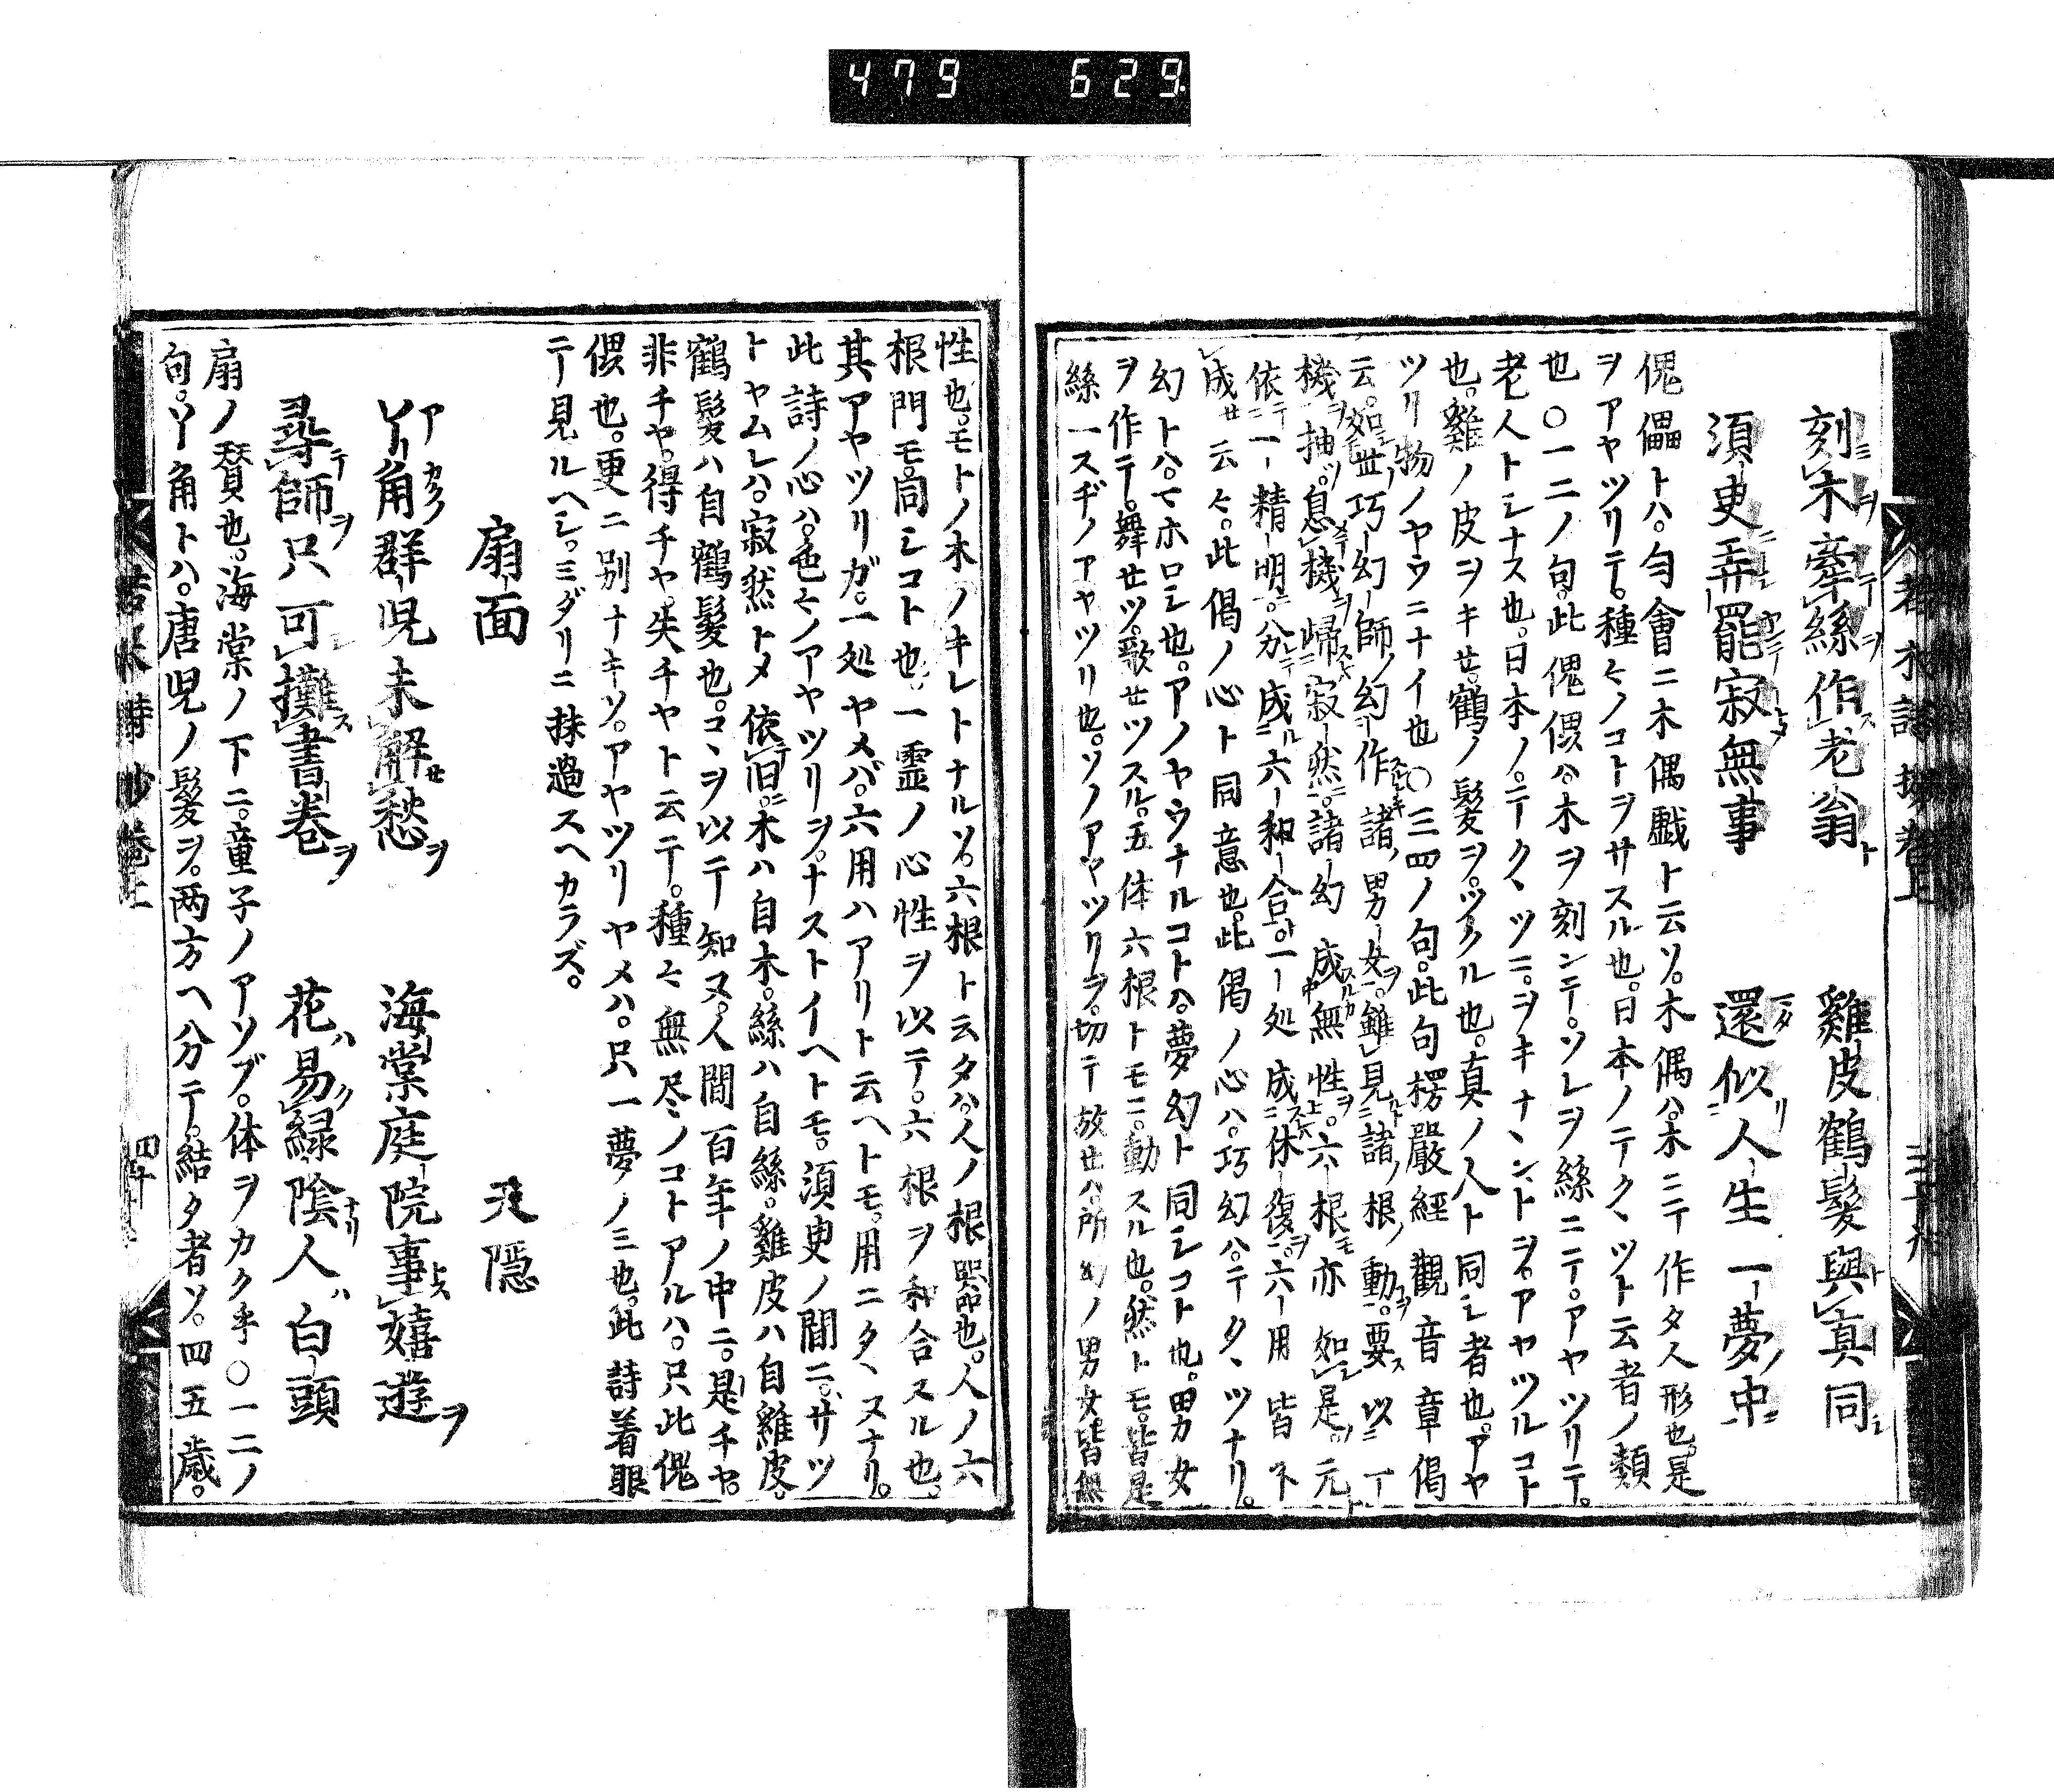 479 629
刻木牽絲作老翁 雞皮鶴髮與真同
須臾弄罷寂無事 還似人生一夢中
傀儡トハ。匀會ニ木偶戲ト云ソ。木偶ハ。木ニテ作タ人形也。是
ヲアヤツリテ。種々ノコトヲサスル也。日本ノテクヽツト云者ノ類
也○一二ノ句。此傀儡ハ。木ヲ刻ンテ。ソレヲ絲ニテ。アヤツリテ。
老人トシナス也。日本ノ。テクヽツニ。ヲキナヽントヲ。アヤツルコト
也。雞ノ皮ヲキセ。鶴ノ髮ヲ。ツクル也。真ノ人ト同シ者也。アヤ
ツリ物ノヤウニナイ也○三四ノ句。此句楞嚴經觀音章偈
云。如世巧幻師ノ幻作諸男女。雖見諸根動。要以一
機抽。息機歸寂然。諸幻成無性。六根亦如是。元
依一精明。分成六和合。一処成休復。六用皆不
成云々。此偈ノ心ト同意也。此偈ノ心ハ。巧幻ハ。テクヽツナリ。
幻トハ。マホロシ也。アノヤウナルコトハ。夢幻ト同シコト也。男女
ヲ作テ。舞セツ。歌セツスル。五体六根トモニ。動スル也。然トモ。皆是
絲一スヂノアヤツリ也。ソノアヤツリヲ。切テ放セハ。所幻ノ男女。皆無
性也。モトノ木ノキレトナルソ。六根ト云タハ。人ノ根器也。人ノ六
根門モ。同シコト也。一霊ノ心性ヲ以テ。六根ヲ和合スル也。
其アヤツリガ。一処ヤメバ。六用ハアリト云ヘトモ。用ニタヽヌナリ。
此詩ノ心ハ。色々ノアヤツリヲ。ナストイヘトモ。須臾ノ間ニ。サツ
トヤムレハ。寂然トメ依旧。木ハ自木。絲ハ自絲。雞皮ハ自雞皮。
鶴髮ハ自鶴髮也。コヽヲ以テ知ヌ。人間百年ノ中ニ。是チヤ。
非チヤ。得チヤ。失チヤト云テ。種々無尽ノコトアルハ。只此傀
儡也。更ニ別ナキソ。アヤツリヤメハ。只一夢ノミ也。此詩着眼
テ見ルヘシ。ミダリニ抹過スヘカラズ。
扇面 天隠
丫角群児未解愁 海棠庭院事嬉遊
尋師只可攤書巻 花易緑陰人白頭
扇ノ賛也。海棠ノ下ニ。童子ノアソブ。体ヲカク乎○一二ノ
句。丫角トハ。唐児ノ髮ヲ。両方ヘ分テ。結タ者ソ。四五歳。
四十